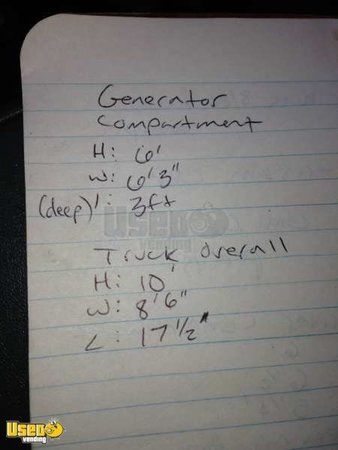 Generator
Compartment
H: 6'
W: 6'3"
(deep)': 3ft
Truck Overall
H: 10'
W: 8'6"
L: 17 1/2"
USED vending
USED vending